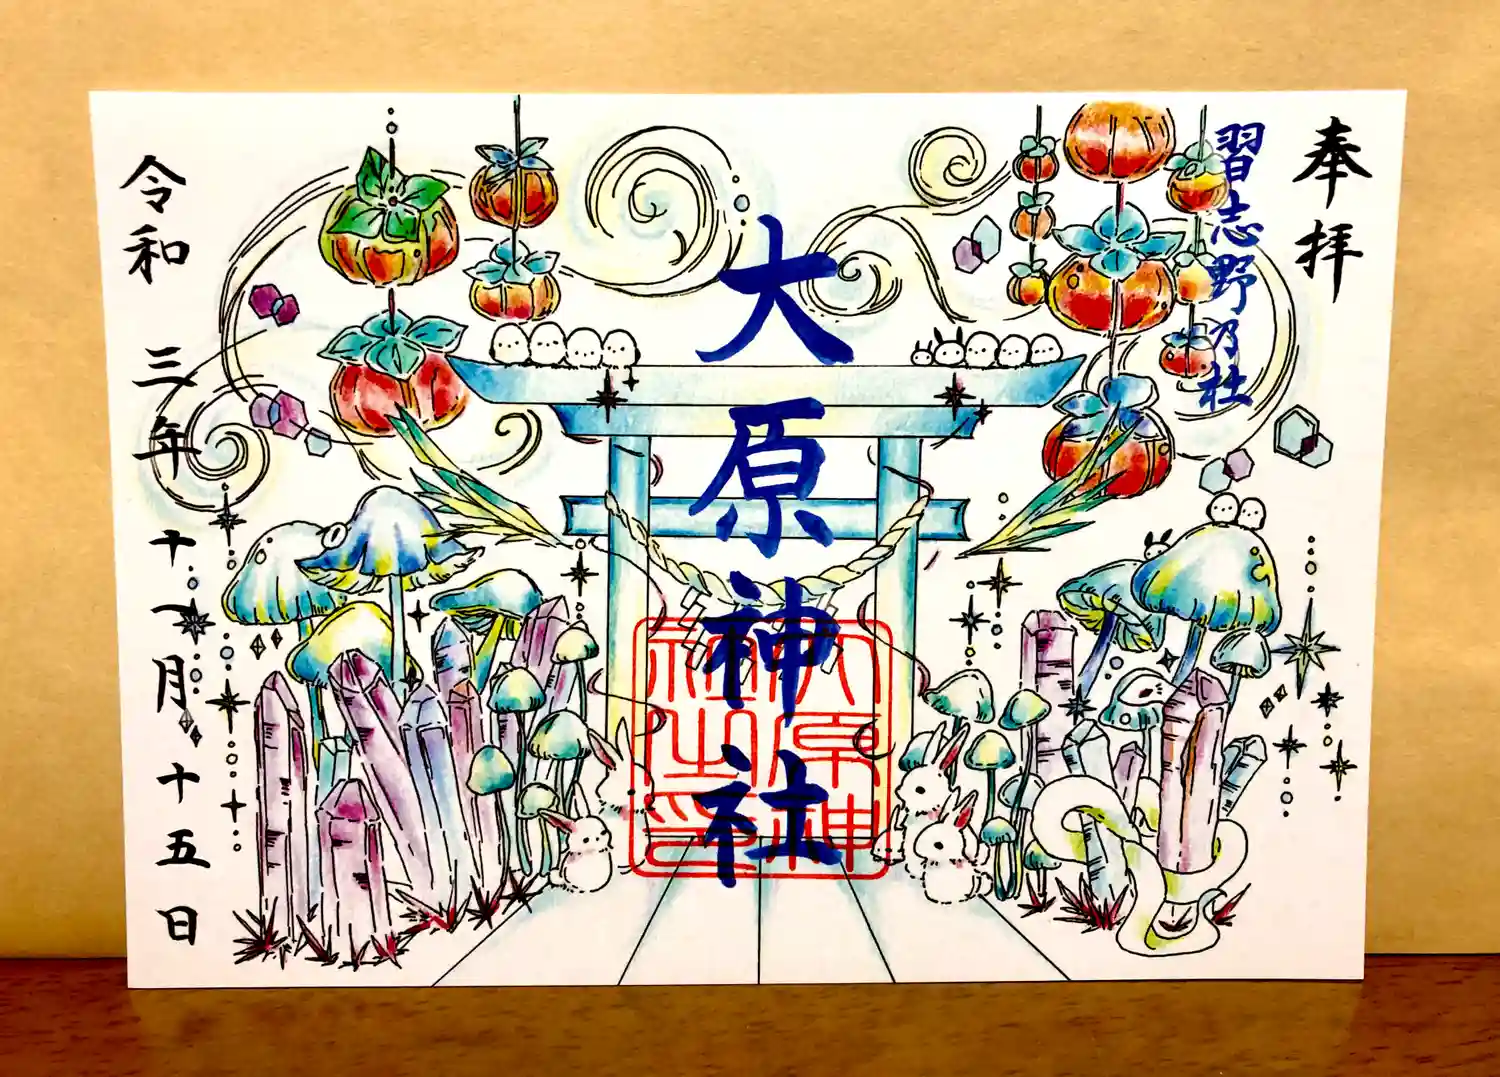 奉拝
習志野乃杜
大原神社
大原神
社之印
令和三年十一月十五日